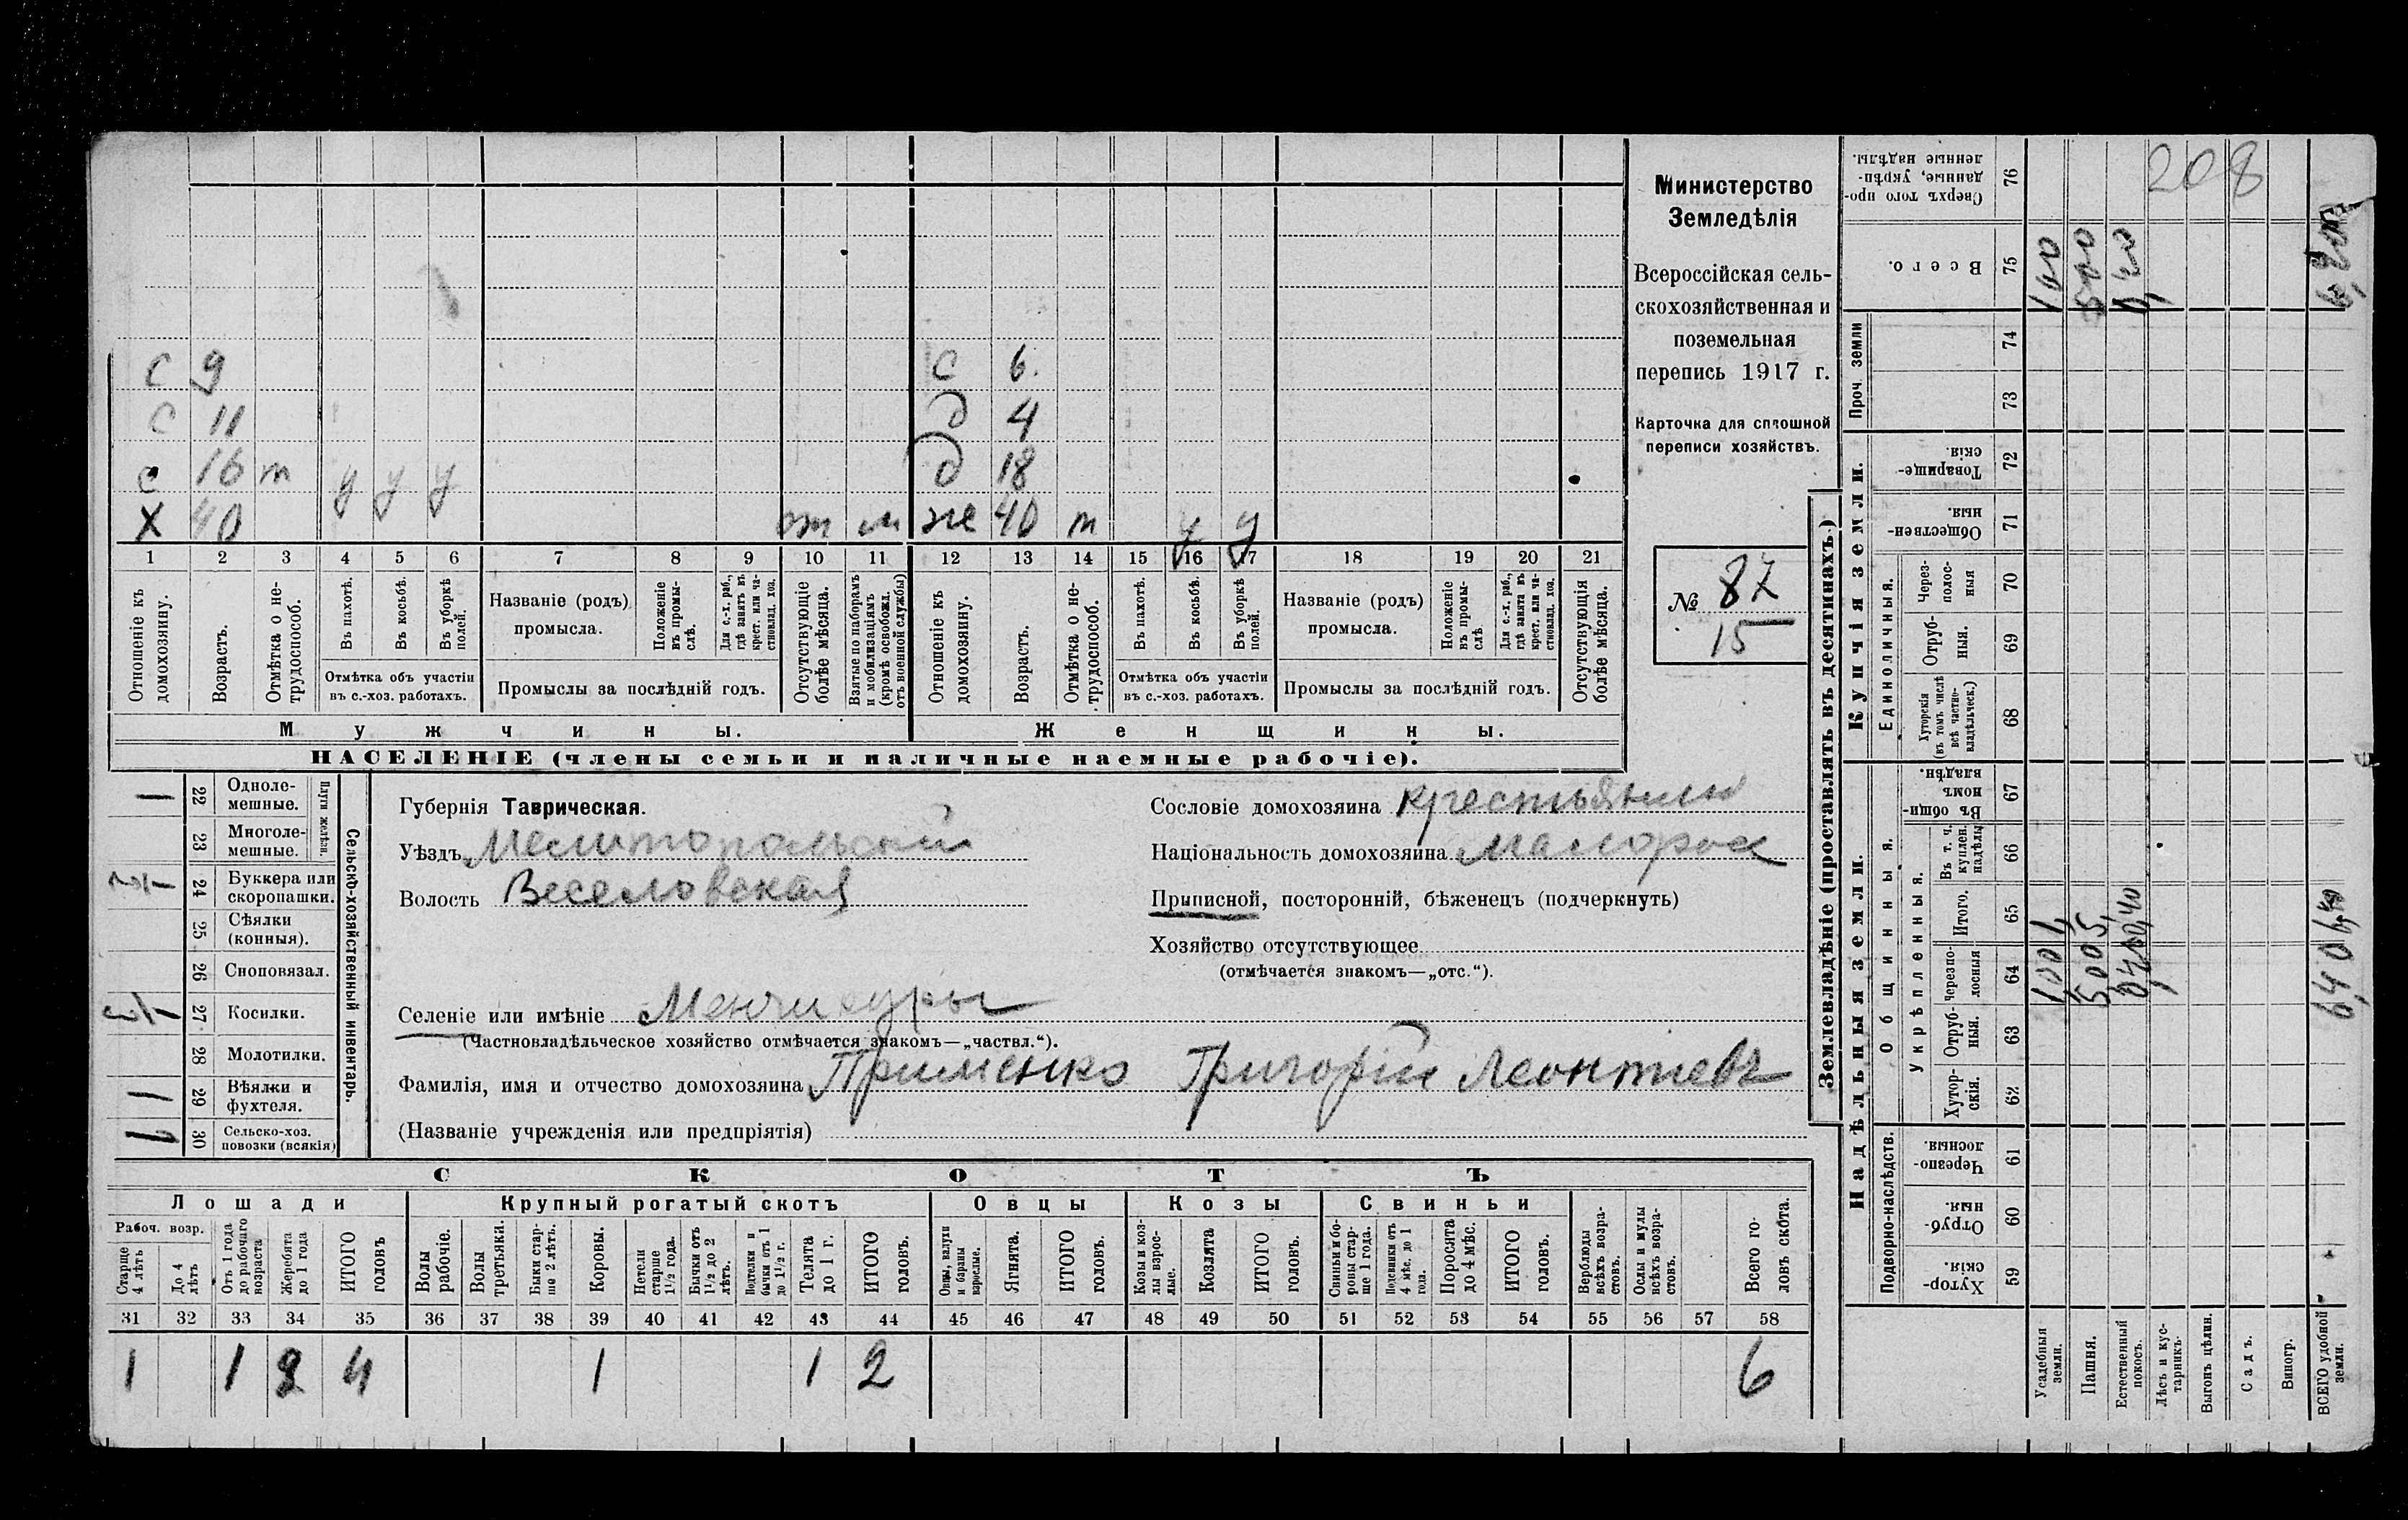 с 9 с 6.
с 11 д 4
с 16 т у у у д 18
Х 40 от м же 40 т у у
1 2 3 4 5 6 7 8 9 10 11 12 13 14 15 16 17 18 19 20 21
Отношеніе къ домохозяину.
Возрастъ.
Отмѣтка о не-
трудоспособ.
Въ пахотѣ.
Въ косьбѣ.
Въ уборкѣ полей.
Отмѣтка объ участіи
въ с.-хоз. работахъ.
Названіе (родъ)
промысла.
Положеніе въ промы-
слѣ.
Для с.-х. раб., гдѣ занятъ въ крест. или ча-
стновлад. хоз.
Промыслы за послѣдній годъ.
Отсутствующіе болѣе мѣсяца.
Взятые по наборамъ и мобилизаціямъ (кромѣ освобожд. отъ военной службы)
Отношеніе къ домохозяину.
Возрастъ.
Отмѣтка о не-
трудоспособ.
Въ пахотѣ.
Въ косьбѣ.
Въ уборкѣ полей.
Отмѣтка объ участіи
въ с.-хоз. работахъ.
Названіе (родъ)
промысла.
Положеніе въ промы-
слѣ
Для с.-х. раб., гдѣ занята въ крест. или ча-
стновлад. хоз.
Промыслы за послѣдній годъ.
Отсутствующія болѣе мѣсяца.
Мужчины. Женщины.
НАСЕЛЕНІЕ (члены семьи и наличные наемные рабочіе).
Министерство
Земледѣлія
Всероссійская сель-
скохозяйственная и
поземельная
перепись 1917 г.
Карточка для сплошной
переписи хозяйствъ.
№ 87
15
22 Одноле-
мешные.
23 Многоле-
мешные.
Плуги желѣзн.
24 Буккера или
скоропашки.
25 Сѣялки
(конныя).
26 Сноповязал.
27 Косилки.
28 Молотилки.
29 Вѣялки и
фухтеля.
30 Сельско-хоз.
повозки (всякія)
Сельско-хозяйственный инвентарь.
Губернія Таврическая.
Уѣздъ Мелитопольскій
Волость Веселовская
Сословіе домохозяина крестьянин
Національность домохозяина малоросс
Приписной, посторонній, бѣженецъ (подчеркнуть)
Хозяйство отсутствующее
(отмѣчается знакомъ—„отс.“).
Селеніе или имѣніе Менчикуры
(Частновладѣльческое хозяйство отмѣчается знакомъ—„частвл.“).
Фамилія, имя и отчество домохозяина Применко Григорій Леонтьевъ
(Названіе учрежденія или предпріятія)
СКОТЪ
Лошади Крупный рогатый скотъ Овцы Козы Свиньи
Рабоч. возр.
Старше 4 лѣтъ
До 4 лѣтъ
Отъ 1 года до рабочаго возраста
Жеребята до 1 года
ИТОГО головъ
Волы рабочіе.
Волы третьяки.
Быки стар-
ше 2 лѣтъ.
Коровы.
Нетели старше 1½ года.
Бычки отъ 1½ до 2 лѣтъ.
Подтелки и бычки отъ 1 до 1½ г.
Телята до 1 г.
ИТОГО головъ.
Овцы, валухи и бараны взрослые.
Ягнята.
ИТОГО головъ.
Козы и коз-
лы взрос-
лые.
Козлята
ИТОГО головъ.
Свиньи и бо-
ровы стар-
ше 1 года.
Подсвинки отъ 4 мѣс. до 1 года.
Поросята до 4 мѣс.
ИТОГО головъ.
Верблюды всѣхъ возра-
стовъ.
Ослы и мулы всѣхъ возра-
стовъ.
Всего го-
ловъ скота.
31 32 33 34 35 36 37 38 39 40 41 42 43 44 45 46 47 48 49 50 51 52 53 54 55 56 57 58
1 1 2 4 1 1 2 6
Землевладѣніе (проставлять въ десятинахъ.)
Надѣльныя земли. Купчія земли. Проч. земли
Подворно-наслѣдств.
Общинныя.
Укрѣпленныя.
Единоличныя.
59 Хутор-
скія.
60 Отруб-
ныя.
61 Черезпо-
лосныя.
62 Хутор-
скія.
63 Отруб-
ныя.
64 черезпо-
лосныя
65 Итого.
66 Въ т. ч. куплен. надѣлы
67 Въ общи-
номъ владѣн.
68 Хуторскія (въ томъ числѣ всѣ частно-
владѣльческ.)
69 Отруб-
ныя.
70 Через-
полос-
ныя
71 Обществен-
ныя.
72 Товарище-
скія.
73
74
75 Всего.
76 Сверхъ того про-
данные, укрѣп-
ленные надѣлы.
Усадебныя земли.
Пашня.
Естественный покосъ.
Лѣсъ и кус-
тарникъ.
Выгонъ цѣлин.
Садъ.
Виногр.
ВСЕГО удобной земли.
208